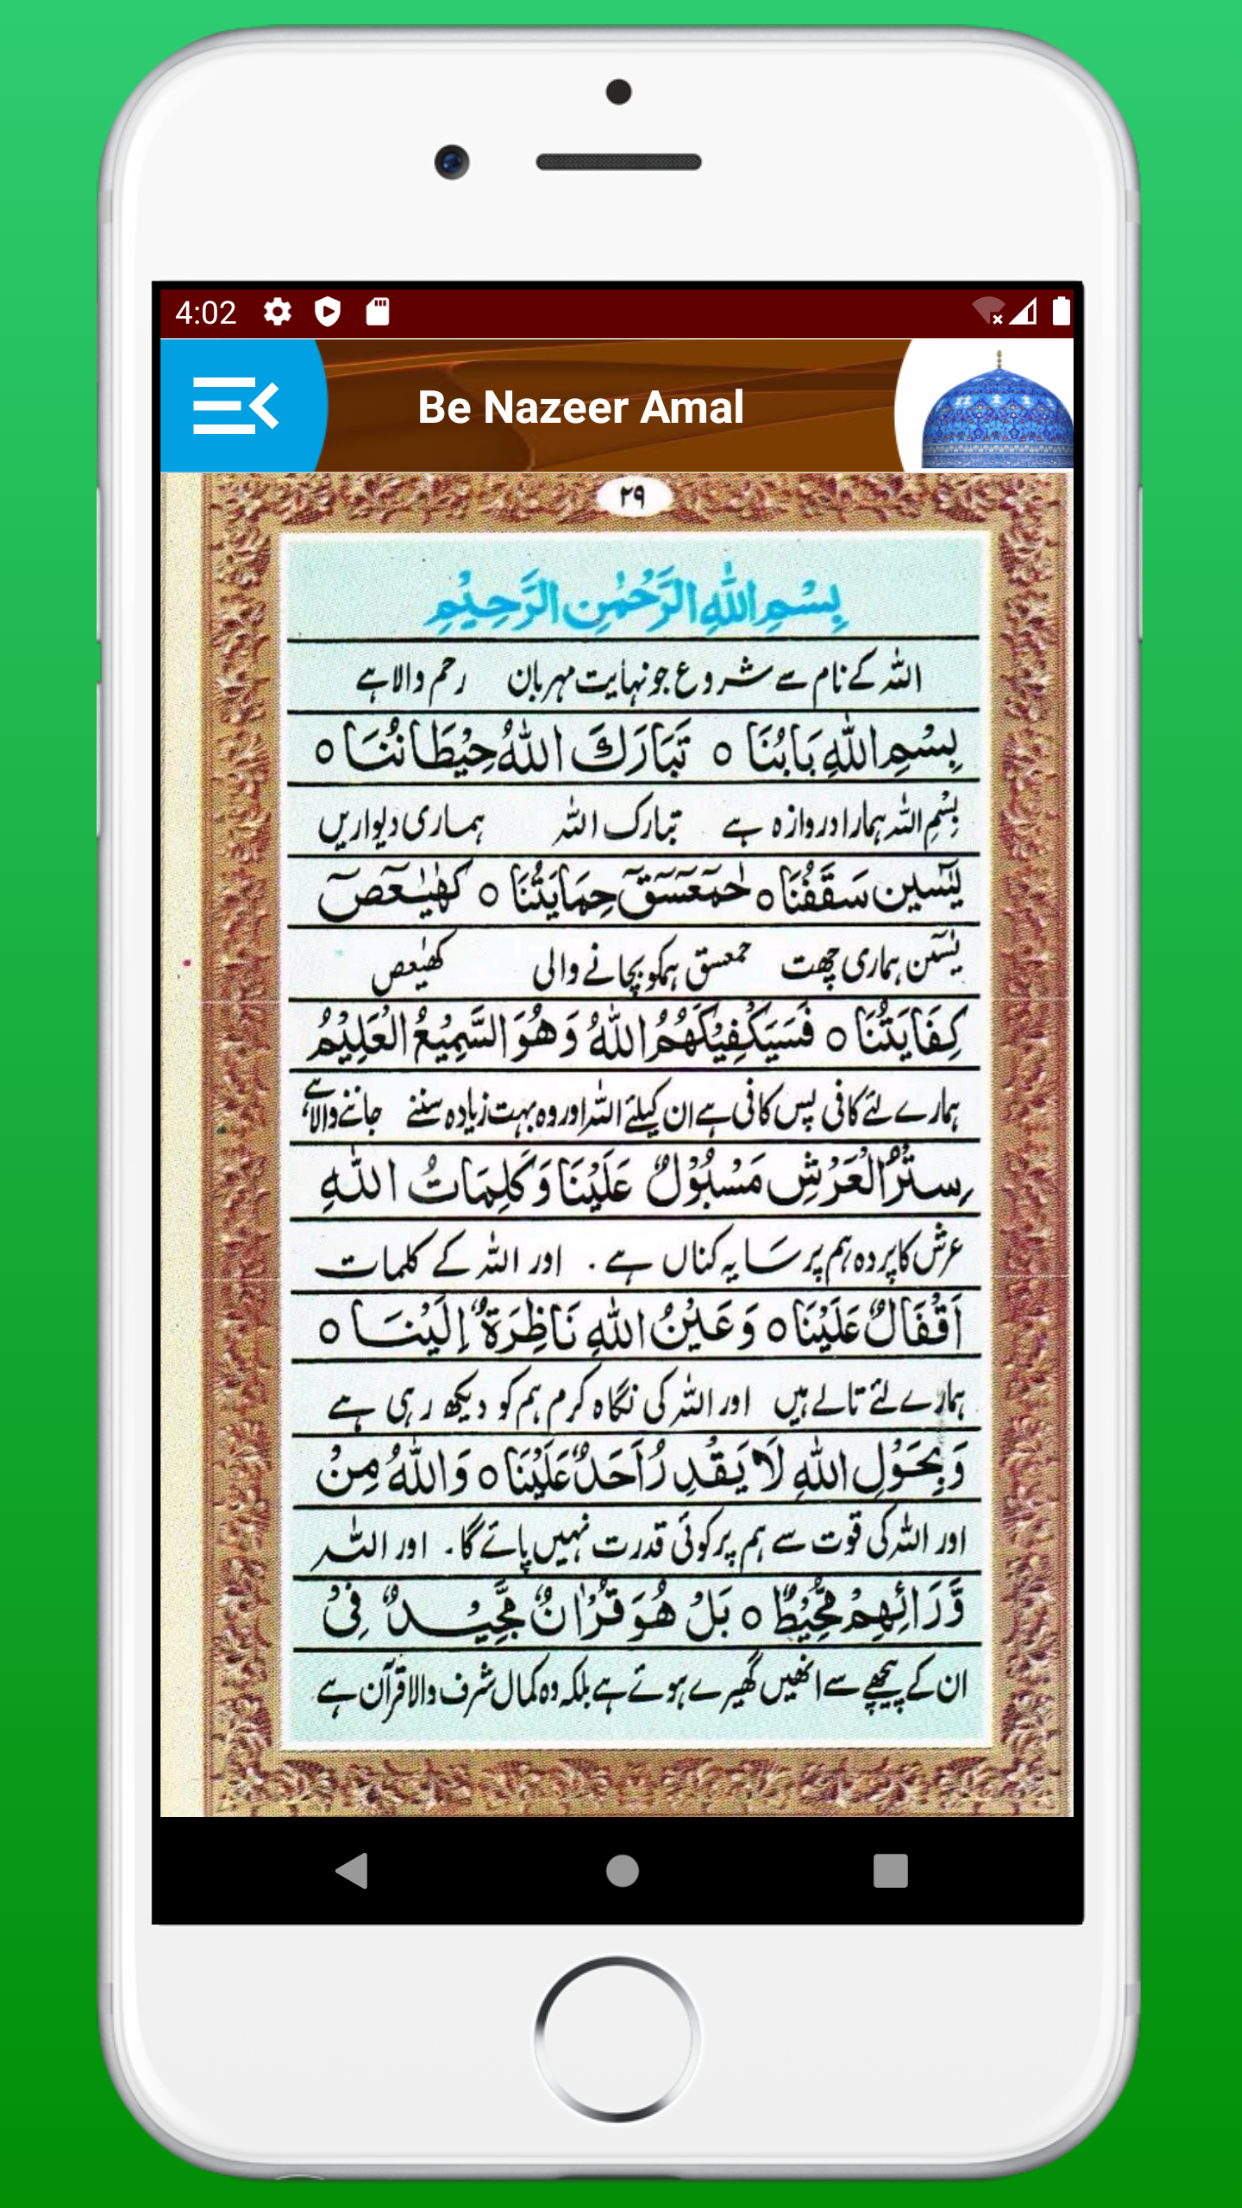 4:02
Be Nazeer Amal
۲۹
بِسْمِ اللّٰهِ الرَّحْمٰنِ الرَّحِيْمِ
اللہ کے نام سے شروع جو نہایت مہربان رحم والا ہے
بِسْمِ اللّٰهِ بَابُنَا ○ تَبَارَكَ اللّٰهُ حِيْطَانُنَا ○
بِسْمِ اللہ ہمارا دروازہ ہے تبارک اللہ ہماری دیواریں
يٰسٓيْن سَقَفُنَا ○ حٰمٓعٓسٓقٓ حِمَايَتُنَا ○ كٓهٰيٰعٓصٓ
یٰسٓن ہماری چھت حمعسق ہمکو بچانے والی کھیٰعص
كِفَايَتُنَا ○ فَسَيَكْفِيْكَهُمُ اللّٰهُ وَهُوَ السَّمِيْعُ الْعَلِيْمُ
ہمارے لئے کافی پس کافی ہے ان کیلئے اللہ اور وہ بہت زیادہ سننے جاننے والا ہے
سِتْرُ الْعَرْشِ مَسْبُوْلٌ عَلَيْنَا وَكَلِمَاتُ اللّٰهِ
عرش کا پردہ ہم پر سایہ کناں ہے۔ اور اللہ کے کلمات
اَقْفَالٌ عَلَيْنَا ○ وَعَيْنُ اللّٰهِ نَاظِرَةٌ اِلَيْنَا ○
ہمارے لئے تالے ہیں اور اللہ کی نگاہ کرم ہم کو دیکھ رہی ہے
وَبِحَوْلِ اللّٰهِ لَا يَقْدِرُ اَحَدٌ عَلَيْنَا ○ وَاللّٰهُ مِنْ
اور اللہ کی قوت سے ہم پر کوئی قدرت نہیں پائے گا۔ اور اللہ
وَّرَائِهِمْ مُّحِيْطٌ ○ بَلْ هُوَ قُرْاٰنٌ مَّجِيْدٌ فِيْ
ان کے پیچھے سے انھیں گھیرے ہوئے ہے بلکہ وہ کمال شرف والا قرآن ہے